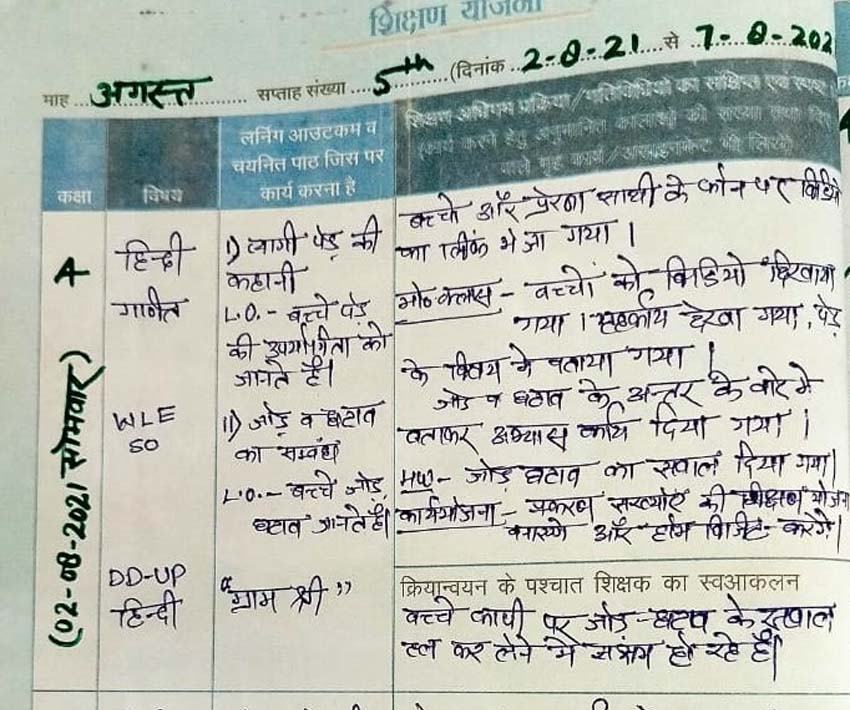 शिक्षण योजना
माह ... अगस्त ... सप्ताह संख्या .... 5th ....(दिनांक ..2-8-21....से ..7-8-202
कक्षा
विषय
लर्निंग आउटकम व
चयनित पाठ जिस पर
कार्य करना है
शिक्षण अधिगम प्रक्रिया/गतिविधियों का संक्षिप्त एवं स्पष्ट
(कार्य करने हेतु अनुमानित कालांशों की संख्या तथा दिए
जाने वाले गृह कार्य/असाइनमेन्ट भी लिखें)
4
(02-08-2021 सोमवार)
हिन्दी
गणित
WLE
SO
DD-UP
हिन्दी
1) त्यागी पेड़ की
कहानी
L.O.- बच्चे पेड़
की उपयोगिता को
जानते हैं।
11) जोड़ व घटाव
का सम्बंध
L.O.- बच्चे जोड़,
घटाव जानते हैं।
"ग्राम श्री"
बच्चों और प्रेरणा साथी के फोन पर विडियो
का लिंक भेजा गया।
मो० क्लास - बच्चों को विडियो दिखाया
गया। गृहकार्य देखा गया, पेड़
के विषय में बताया गया।
जोड़ व घटाव के अन्तर के बारे में
बताकर अभ्यास कार्य दिया गया।
HW- जोड़ घटाव का सवाल दिया गया।
कार्ययोजना - प्रकरण संख्याएं की शिक्षण योजना
बनाएंगे और होम विजिट करेंगे।
क्रियान्वयन के पश्चात शिक्षक का स्वआकलन
बच्चे कापी पर जोड़-घटाव के सवाल
हल कर लेने में सक्षम हो रहे हैं।